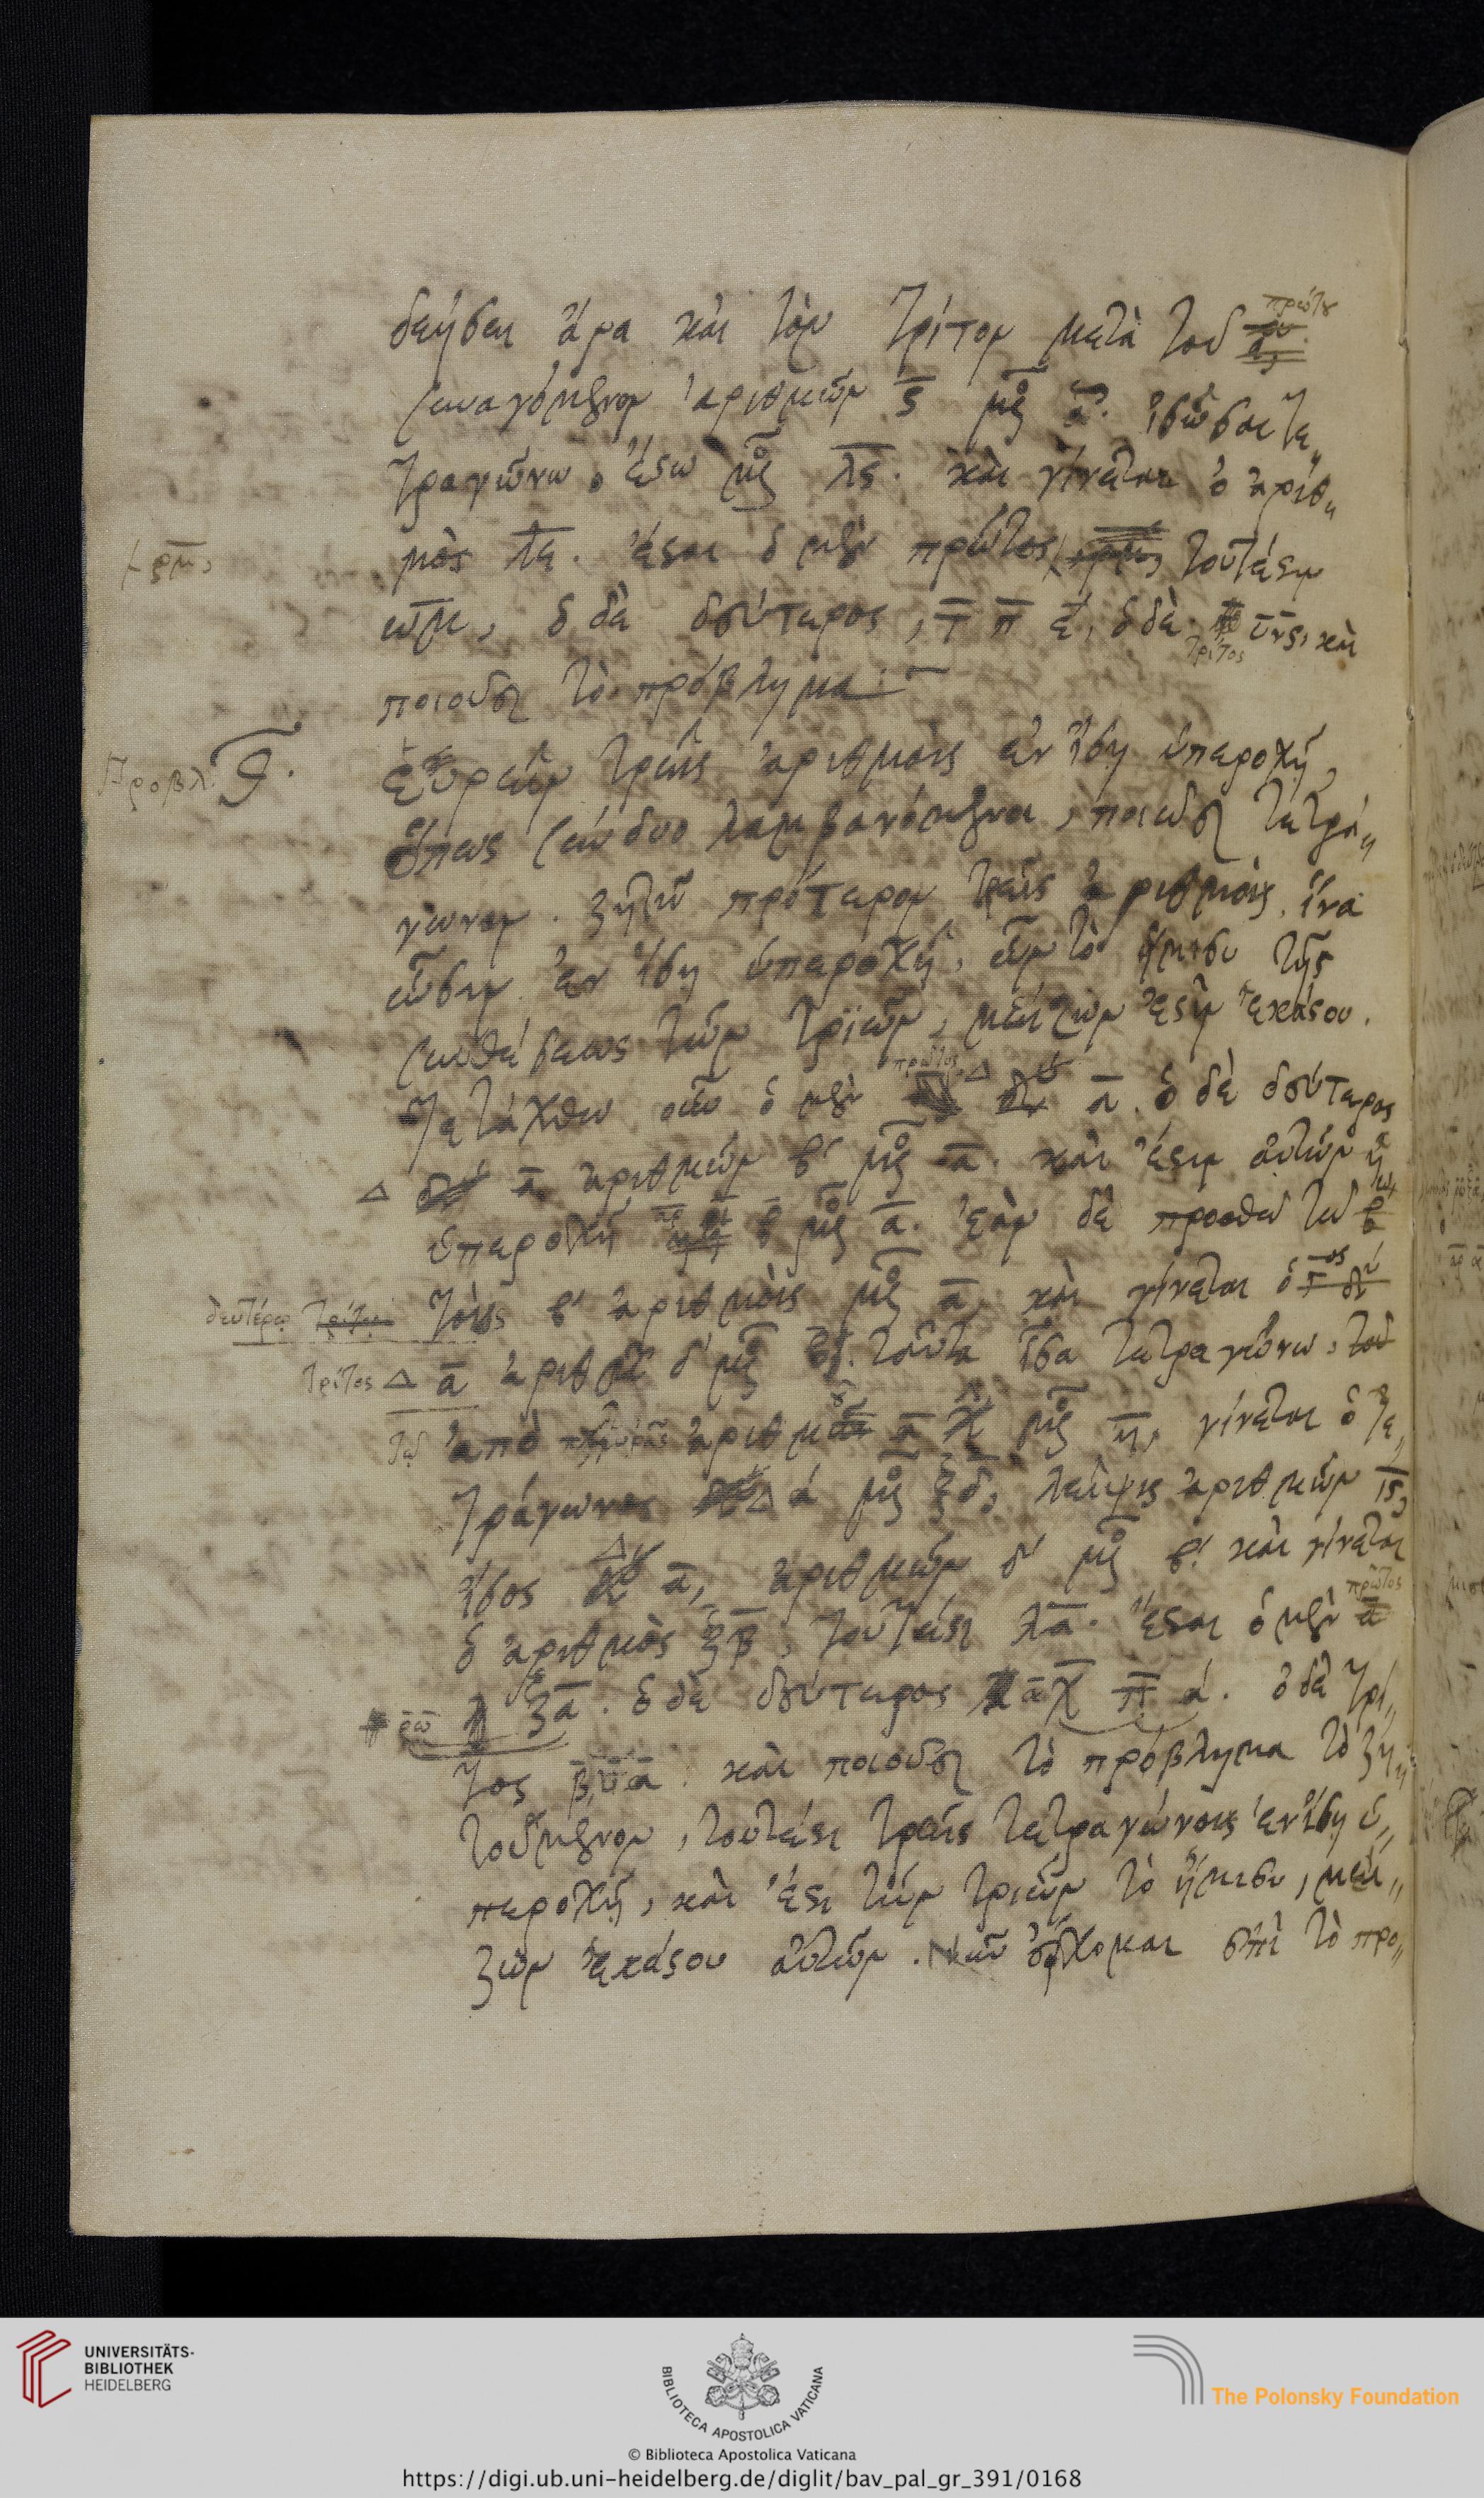 πρώτου
δεήσει ἄρα καὶ τὸν τρίτον μετὰ τοῦ
συναγόμενον ἀριθμῶν ς̄ μο ᾱ. ἰσῶσαι τε„
τραγώνω, ἔστω μο λς. καὶ γίνεται ὁ ἀριθ„
μὸς λε. ἔσται ὁ μὲν πρῶτος τουτέστιν
ωμ, ὁ δὲ δεύτερος, τ π ε, ὁ δὲ τρίτος υνς, καὶ
ποιοῦσι τὸ πρόβλημα:
Προβλ. θ.
εὑρεῖν τρεῖς ἀριθμοὺς ἐν ἴση ὑπεροχῇ,
ὅπως σύνδυο λαμβανόμενοι, ποιῶσι τετρά„
γωνον. ζητῶ πρότερον τρεῖς ἀριθμοὺς, ἵνα
ὦσιν ἐν ἴση ὑπεροχῇ, ὧν τὸ ἥμισυ τῆς
συνθέσεως τῶν τριῶν, μείζων ἐστὶν ἑκάστου.
πρῶτος Δ
τετάχθω οὖν ὁ μὲν ᾱ. ὁ δὲ δεύτερος
Δ ᾱ ἀριθμῶν β' μο ᾱ. καὶ ἔστιν αὐτῶν ἡ
ὑπεροχὴ β μο ᾱ. ἐὰν δὲ προσθῶ τῶ
δευτέρῳ τοὺς β' ἀριθμοὺς μο ᾱ, καὶ γίνεται ὁ
τρίτος Δ ᾱ ἀριθμ δ' μο β. ταῦτα ἴσα τετραγώνω, τοῦ
τῷ ἀπὸ πλευρᾶς ἀριθμοῦ ᾱ μο η, γίνεται ὁ τε„
τράγωνος Δ ά μο ξδ, λείψις ἀριθμῶν ις,
ἴσος Δ ᾱ, ἀριθμῶν δ' μο β. καὶ γίνεται
ὁ ἀριθμὸς ξβ, τουτέστι λᾱ. ἔσται ὁ μὲν πρῶτος
ξᾱ. ὁ δὲ δεύτερος ά. ὁ δὲ τρί„
τος β,υ,ᾱ. καὶ ποιοῦσι τὸ πρόβλημα τὸ ζη„
τούμενον, τουτέστι τρεῖς τετραγώνους ἐν ἴση ὑ„
περοχῇ, καὶ ἔστι τῶν τριῶν τὸ ἥμισυ, μεί„
ζων ἑκάστου αὐτῶν. Νῦν ἔρχομαι ἐπὶ τὸ προ„
UNIVERSITÄTS-
BIBLIOTHEK
HEIDELBERG
BIBLIOTECA APOSTOLICA VATICANA
The Polonsky Foundation
© Biblioteca Apostolica Vaticana
https://digi.ub.uni-heidelberg.de/diglit/bav_pal_gr_391/0168